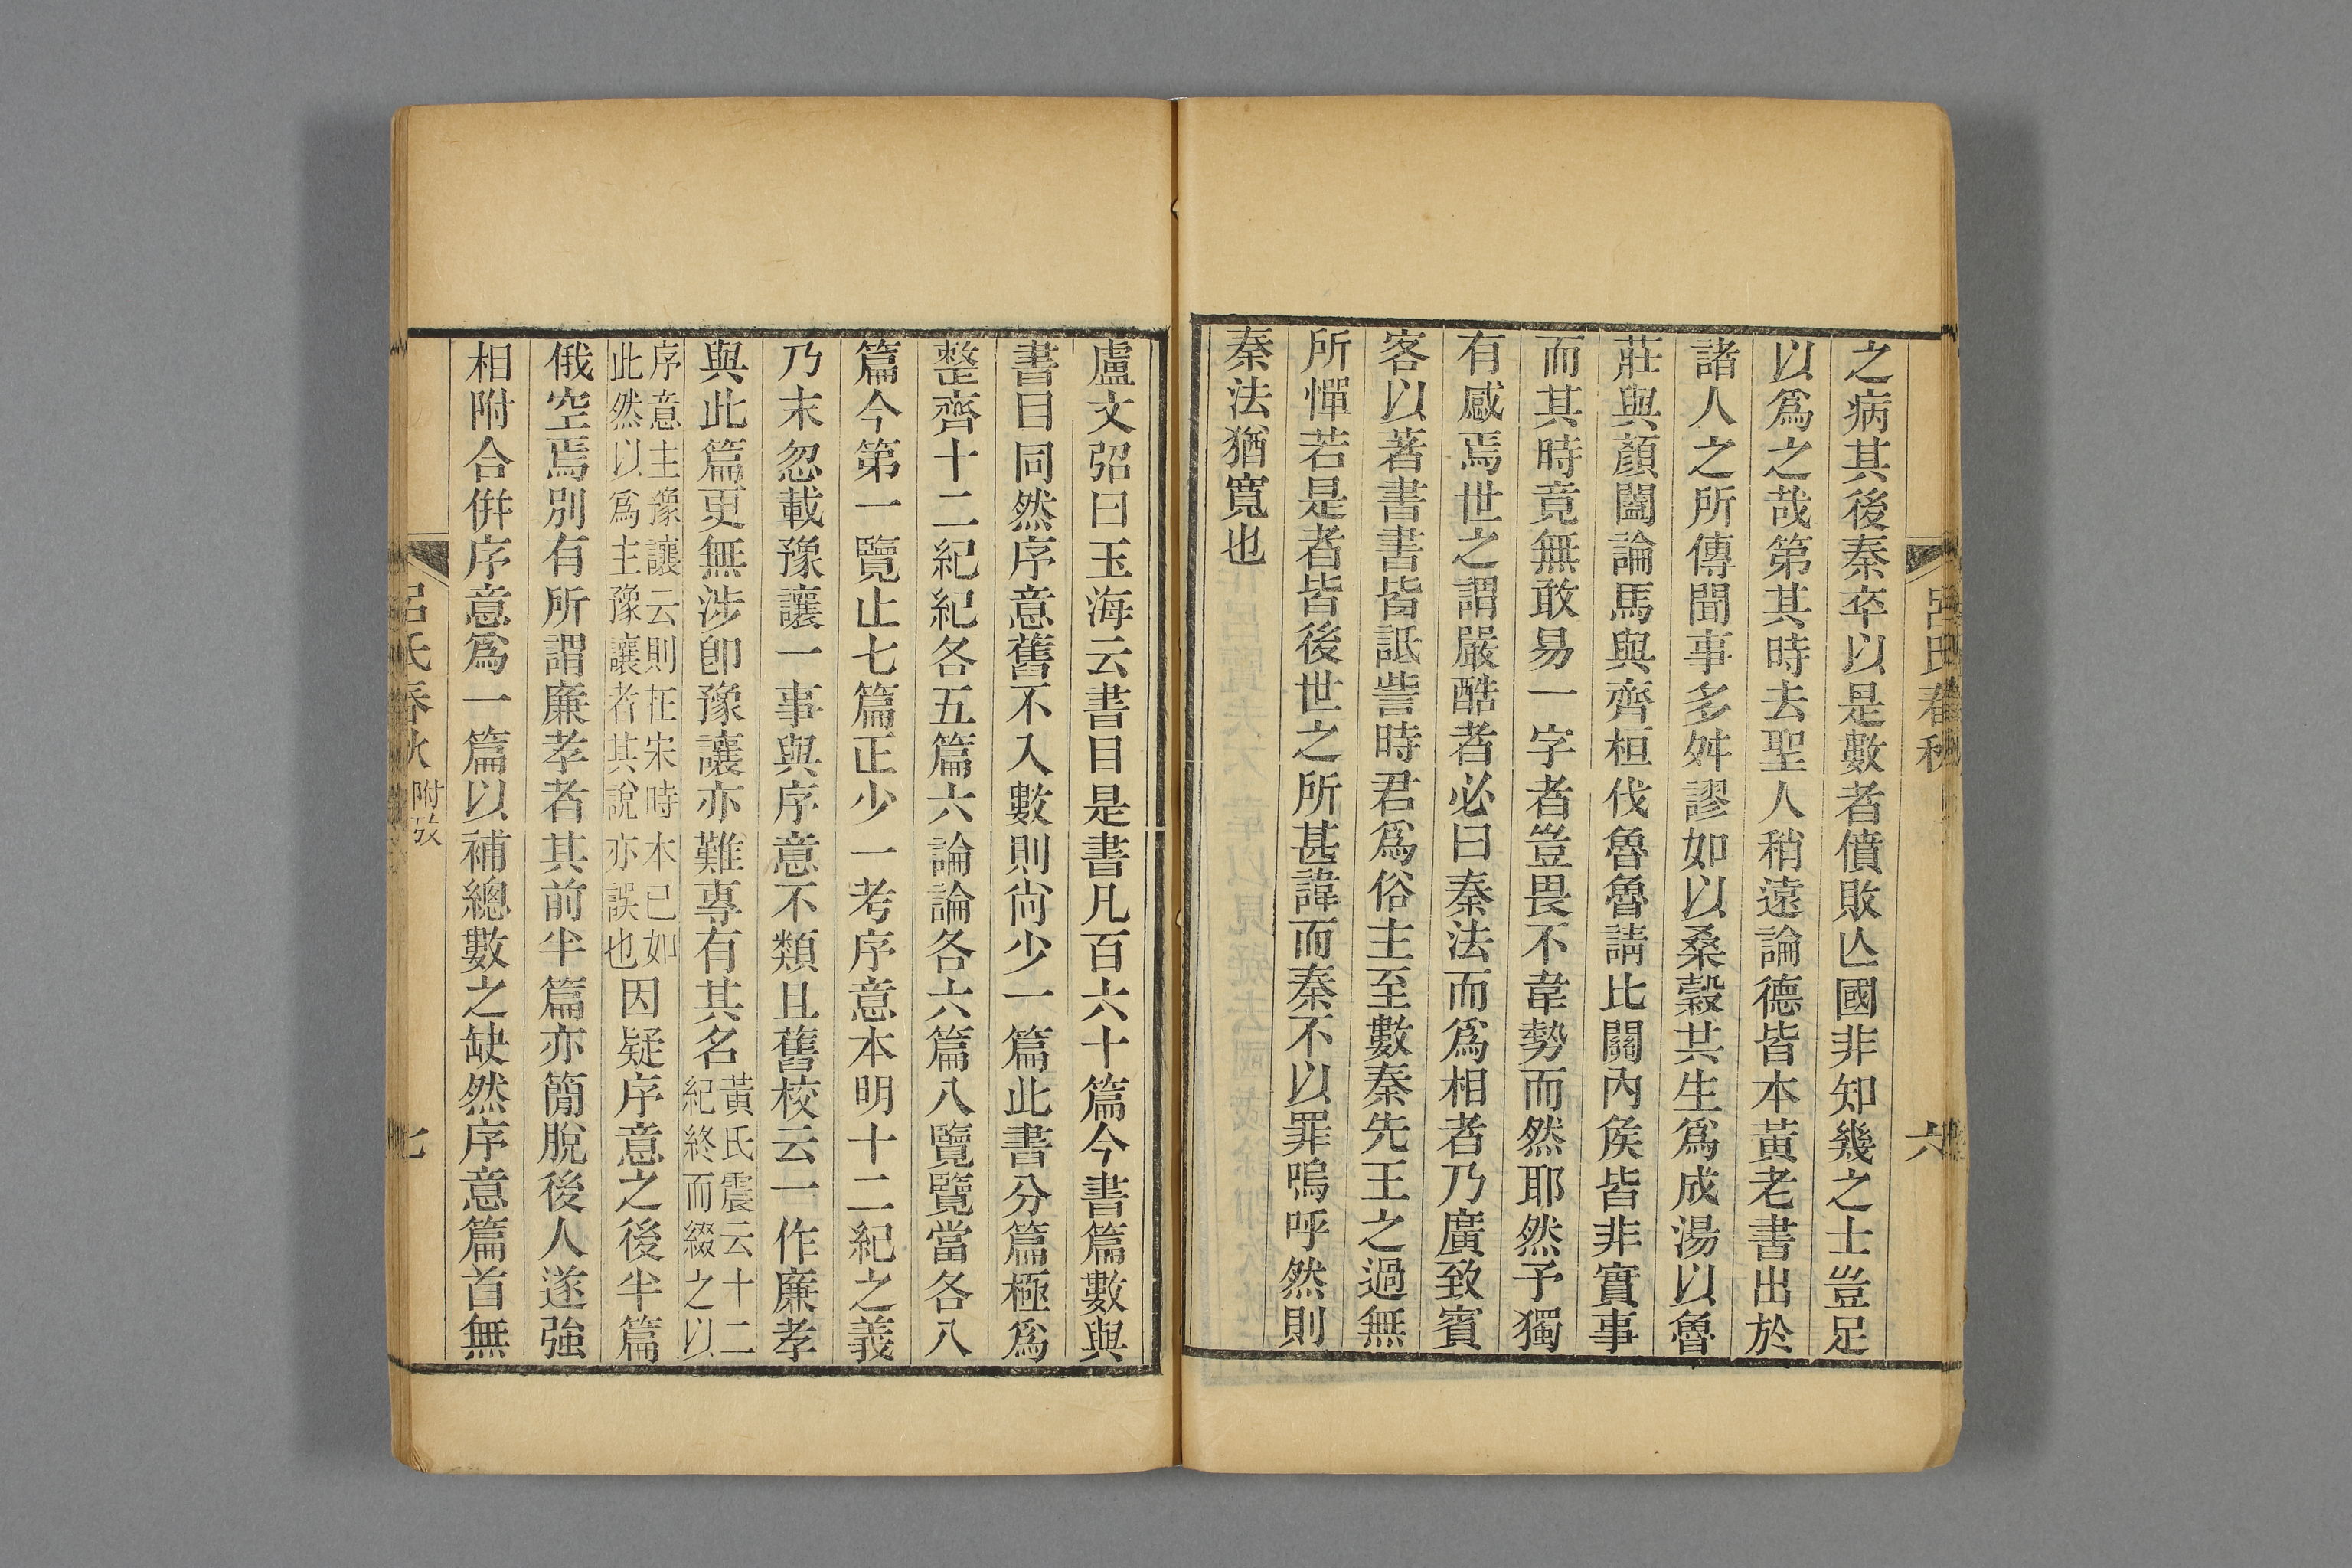 呂氏春秋
六
之病其後秦卒以是數者僨敗亾國非知幾之士豈足
以爲之哉第其時去聖人稍遠論德皆本黃老書出於
諸人之所傳聞事多舛謬如以桑穀共生爲成湯以魯
莊與顏闔論馬與齊桓伐魯魯請比關內矦皆非實事
而其時竟無敢易一字者豈畏不韋勢而然耶然予獨
有感焉世之謂嚴酷者必曰秦法而爲相者乃廣致賓
客以著書書皆詆訾時君爲俗主至數秦先王之過無
所憚若是者皆後世之所甚諱而秦不以罪嗚呼然則
秦法猶寬也
盧文弨曰玉海云書目是書凡百六十篇今書篇數與
書目同然序意舊不入數則尚少一篇此書分篇極爲
整齊十二紀紀各五篇六論論各六篇八覽覽當各八
篇今第一覽止七篇正少一考序意本明十二紀之義
乃末忽載豫讓一事與序意不類且舊校云一作廉孝
與此篇更無涉卽豫讓亦難專有其名黃氏震云十二紀終而綴之以
序意主豫讓云則在宋時本已如此然以爲主豫讓者其說亦誤也因疑序意之後半篇
俄空焉別有所謂廉孝者其前半篇亦簡脫後人遂強
相附合倂序意爲一篇以補總數之缺然序意篇首無
呂氏春秋 附攷
七